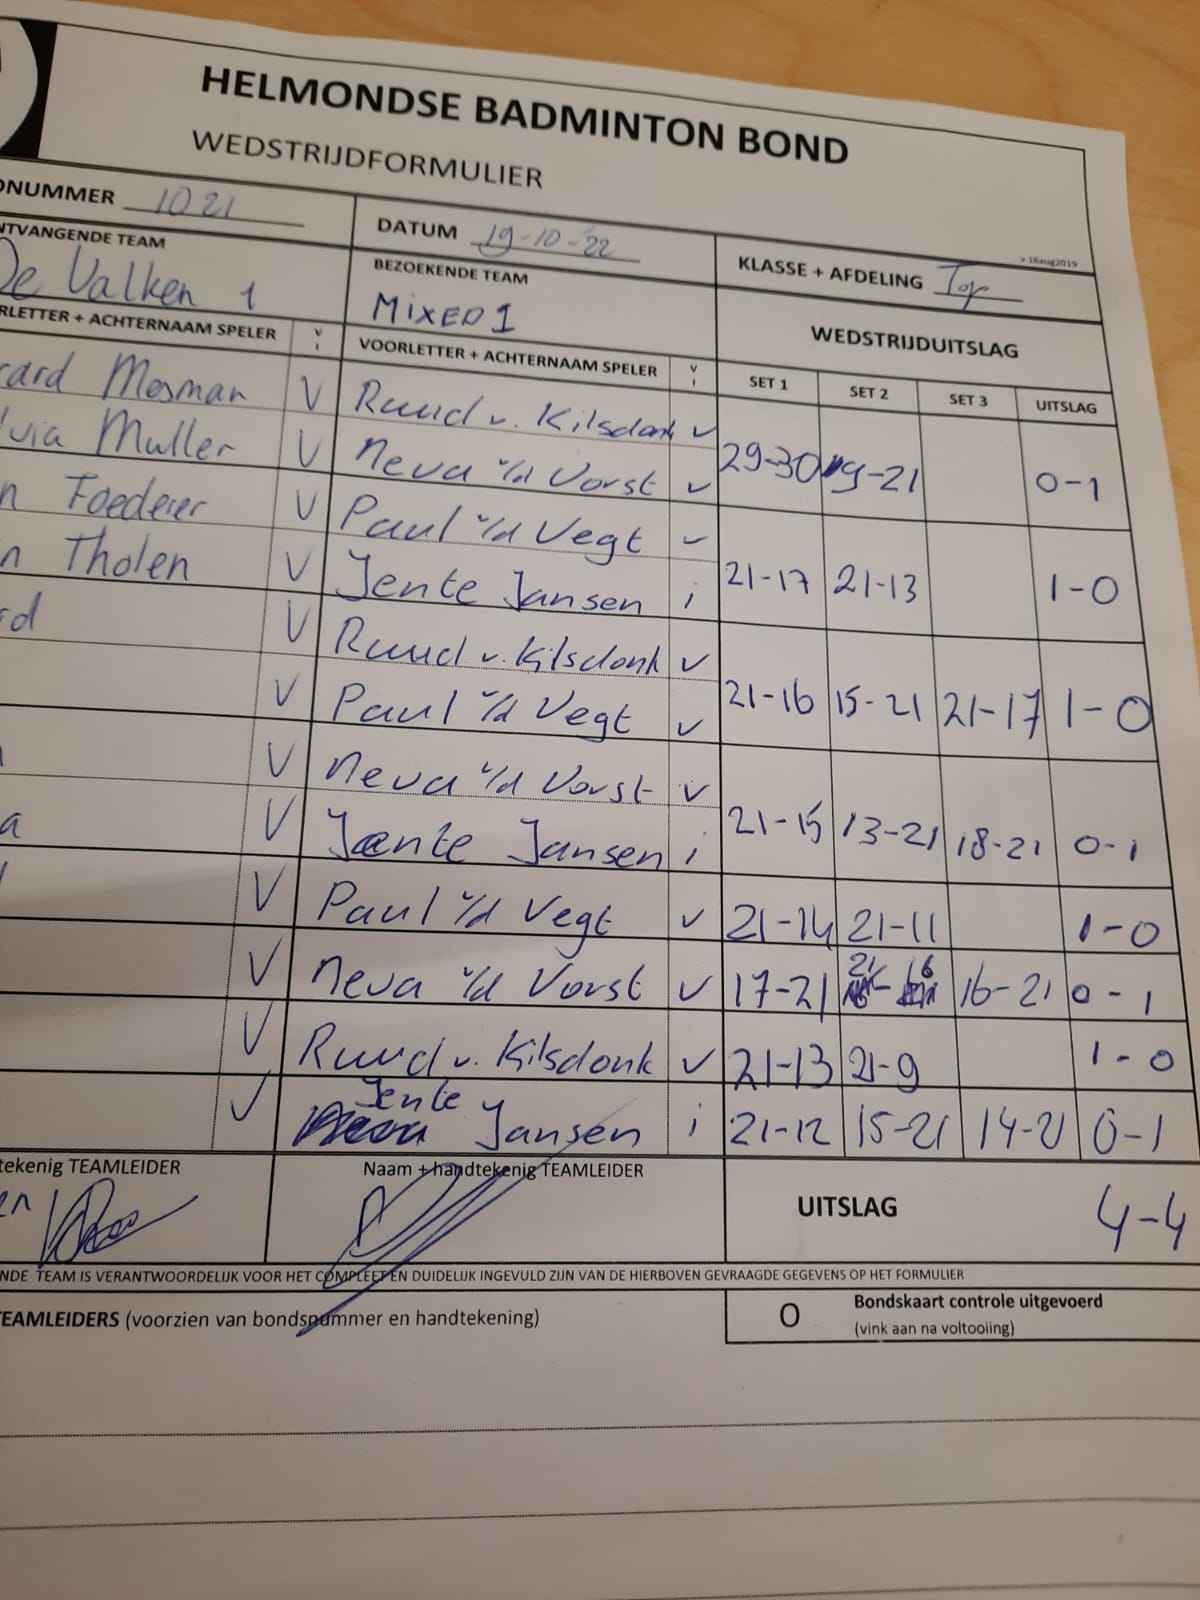 HELMONDSE BADMINTON BOND
WEDSTRIJDFORMULIER
v 16aug2019
DNUMMER 1021
DATUM 19-10-22
KLASSE + AFDELING Top
NTVANGENDE TEAM
De Valken 1
BEZOEKENDE TEAM
MIXED 1
WEDSTRIJDUITSLAG
RLETTER + ACHTERNAAM SPELER V I VOORLETTER + ACHTERNAAM SPELER V I SET 1 SET 2 SET 3 UITSLAG
rard Mosman V Ruud v. Kilsdonk v
lvia Muller V Neva v/d Vorst v 29-30 19-21 0-1
n Foederer V Paul v/d Vegt v
n Tholen V Jente Jansen i 21-17 21-13 1-0
rd V Ruud v. Kilsdonk v
V Paul v/d Vegt v 21-16 15-21 21-17 1-0
V Neva v/d Vorst v
a V Jente Jansen i 21-15 13-21 18-21 0-1
V Paul v/d Vegt v 21-14 21-11 1-0
V Neva v/d Vorst v 17-21 21-16 16-21 0-1
V Ruud v. Kilsdonk v 21-13 21-9 1-0
V Jente Jansen i 21-12 15-21 14-21 0-1
tekenig TEAMLEIDER
Naam + handtekenig TEAMLEIDER
en
UITSLAG 4-4
NDE TEAM IS VERANTWOORDELIJK VOOR HET COMPLEET EN DUIDELIJK INGEVULD ZIJN VAN DE HIERBOVEN GEVRAAGDE GEGEVENS OP HET FORMULIER
TEAMLEIDERS (voorzien van bondsnummer en handtekening)
O Bondskaart controle uitgevoerd
(vink aan na voltooiing)